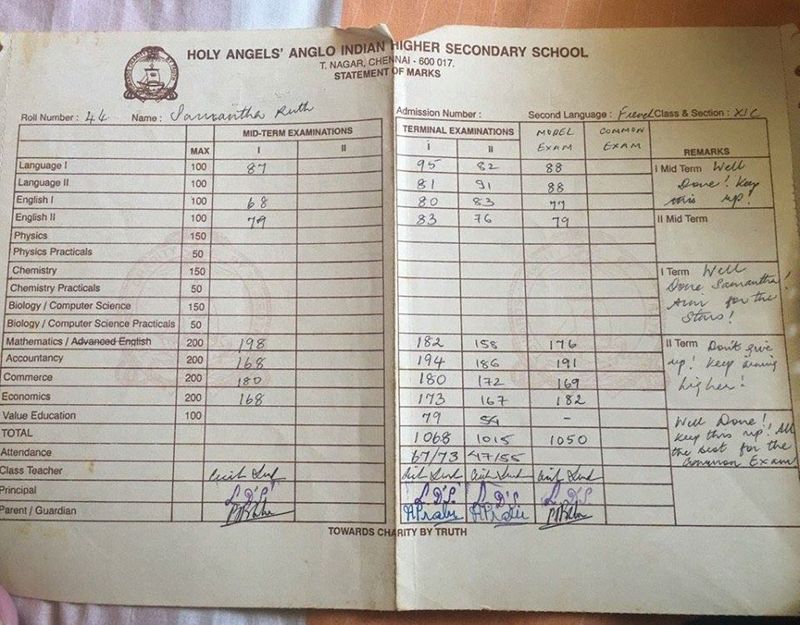 HOLY ANGELS' ANGLO INDIAN HIGHER SECONDARY SCHOOL
T. NAGAR, CHENNAI - 600 017.
STATEMENT OF MARKS
Roll Number : 44 Name : Samantha Ruth Admission Number : Second Language : French Class & Section : XIC
MID-TERM EXAMINATIONS TERMINAL EXAMINATIONS MODEL EXAM COMMON EXAM REMARKS
MAX I II I II
Language I 100 87 95 82 88
Language II 100 81 91 88
English I 100 68 80 83 77
English II 100 79 83 76 79
Physics 150
Physics Practicals 50
Chemistry 150
Chemistry Practicals 50
Biology / Computer Science 150
Biology / Computer Science Practicals 50
Mathematics / Advanced English 200 198 182 158 176
Accountancy 200 168 194 186 191
Commerce 200 180 180 172 169
Economics 200 168 173 167 182
Value Education 100 79 54 -
TOTAL 1068 1015 1050
Attendance 67/73 47/55
Class Teacher
Principal
Parent / Guardian
I Mid Term Well
Done! Keep
this up!
II Mid Term
I Term Well
Done Samantha!
Aim for the
Stars!
II Term Don't give
up! Keep aiming
higher!
Well Done!
Keep this up! All
the best for the
Common Exam
TOWARDS CHARITY BY TRUTH